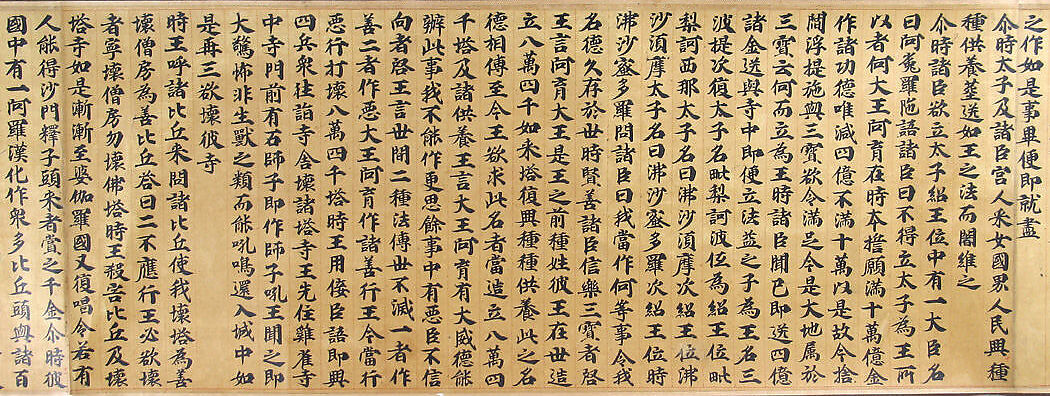 之作如是事畢便即就盡
尒時太子及諸臣宮人采女國男人民興種
種供養葬送如王之法而闍維之
尒時諸臣欲立太子紹王位中有一大臣名
曰阿㝹羅陁語諸臣曰不得立太子為王所
以者何大王阿育在時本擔願滿十萬億金
作諸功德唯減四億不滿十萬以是故今捨
閻浮提施與三寶欲令滿足今是大地属於
三寶云何而立為王時諸臣聞已即送四億
諸金送與寺中即便立法益之子為王名三
波提次復太子名毗梨訶波位為紹王位毗
梨訶西那太子名曰沸沙須摩次紹王位沸
沙須摩太子名曰沸沙蜜多羅次紹王位時
沸沙蜜多羅問諸臣曰我當作何等事令我
名德久存於世時賢善諸臣信樂三寶者啓
王言阿育大王是王之前種姓彼王在世造
立八萬四千如来塔復興種種供養此之名
德相傳至今王欲求此名者當造立八萬四
千塔及諸供養王言大王阿育有大威德能
辦此事我不能作更思餘事中有惡臣不信
向者啓王言世間二種法傳世不滅一者作
善二者作惡大王阿育作諸善行王今當行
惡行打壞八萬四千塔時王用佞臣語即興
四兵衆往詣寺舍壞諸塔寺王先住雞雀寺
中寺門前有石師子即作師子吼王聞之即
大驚怖非生獸之類而能吼鳴還入城中如
是再三欲壞彼寺
時王呼諸比丘来問諸比丘使我壞塔為善
壞僧房為善比丘答曰二不應行王必欲壞
者寧壞僧房勿壞佛塔時王殺害比丘及壞
塔寺如是漸漸至婆伽羅國又復唱令若有
人能得沙門釋子頭来者當之千金尒時彼
國中有一阿羅漢化作衆多比丘頭與諸百